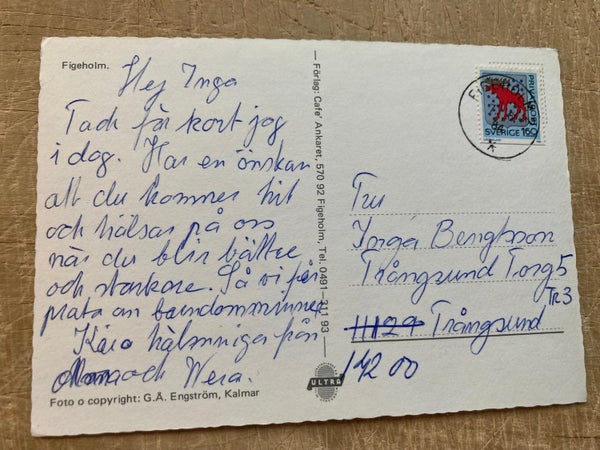 Figeholm.
Hej Inga
Tack för kort jag
i dag. Har en önskan
att du kommer hit
och hälsar på oss
när du blir bättre
och starkare. Så vi får
prata om barndomsminnen
Kära hälsningar från
och Wera.
Foto o copyright: G.Ä. Engström, Kalmar
Förlag: Cafe' Ankaret, 570 92 Figeholm, Tel. 0491-311 93
ULTRA
SVERIGE 160
Bengtsson
Trångsund Torg 5
Tr 3
Trångsund
142 00